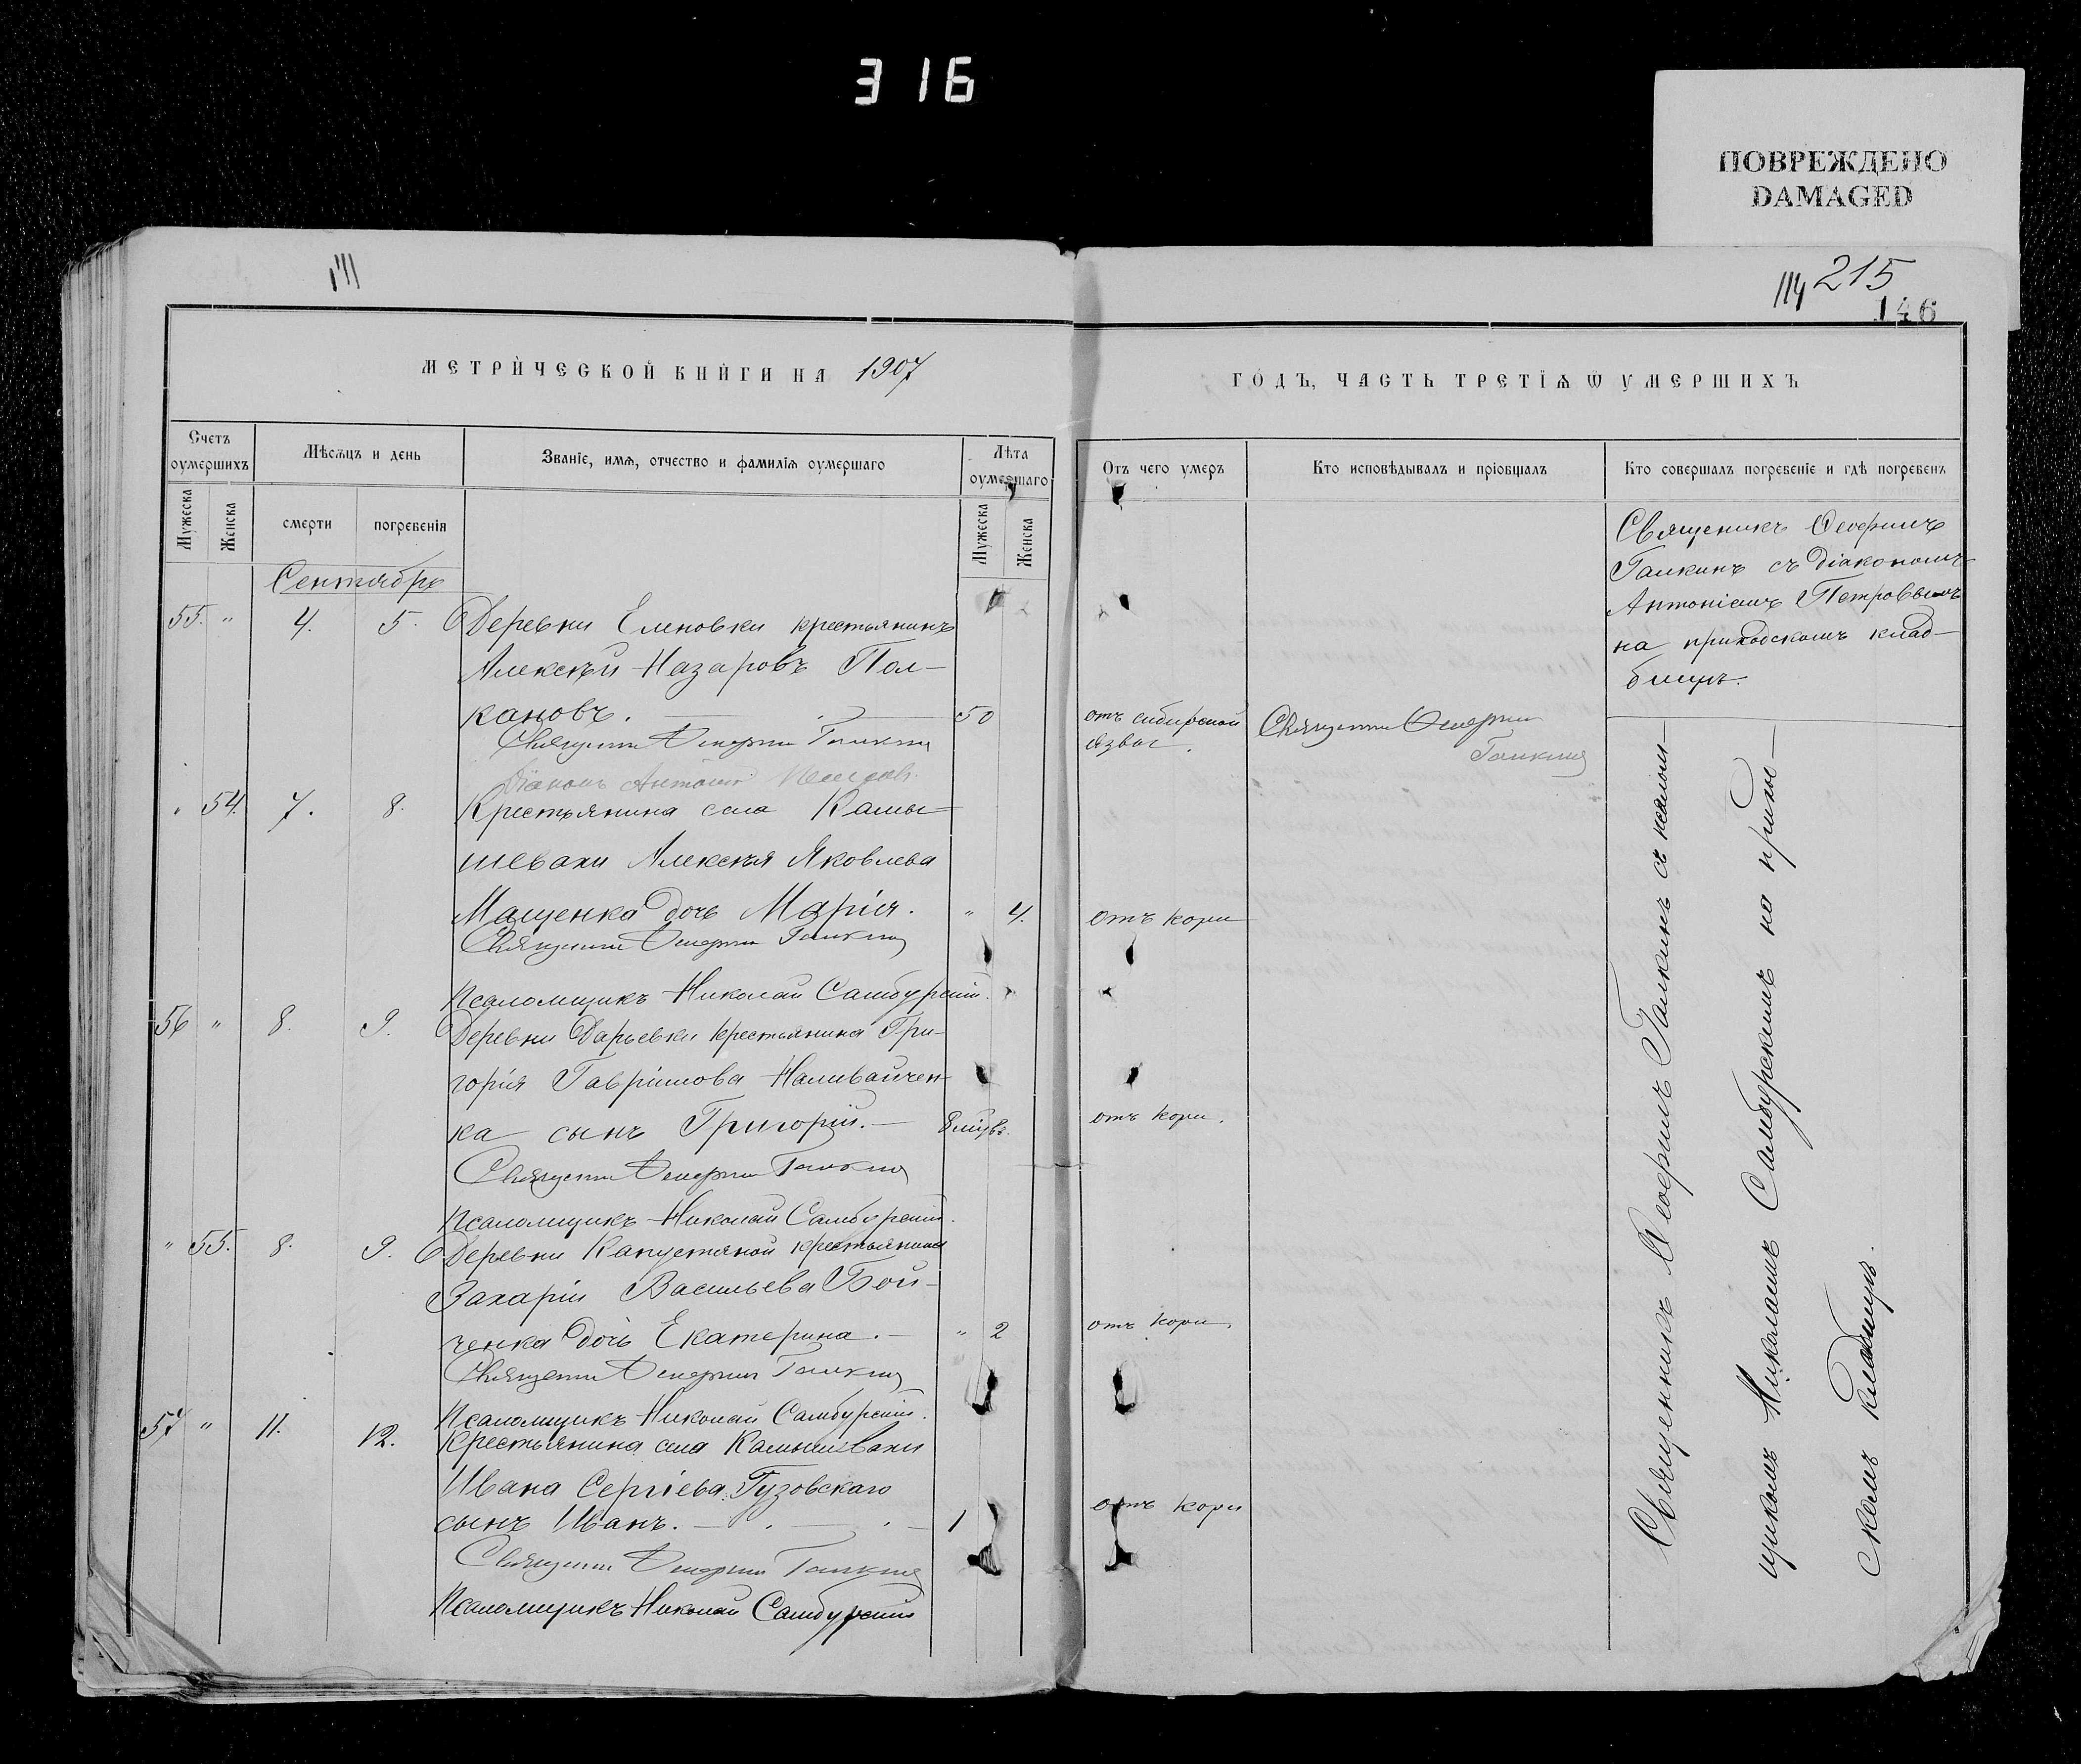 316
ПОВРЕЖДЕНО
DAMAGED
111
114 215
146
МЕТРИЧЕСКОЙ КНИГИ НА 1907
ГОДЪ, ЧАСТЬ ТРЕТІѦ Ѿ УМЕРШИХЪ
Счетъ оумершихъ
Мѣсѧцъ и день
Званіе, имѧ, отчество и фамиліѧ оумершаго
Лѣта оумершаго
Отъ чего умеръ
Кто исповѣдывалъ и пріобщалъ
Кто совершалъ погребеніе и гдѣ погребенъ
Мужеска
Женска
смерти
погребенія
Мужеска
Женска
Сентябрь
55. " 4. 5. Деревни Еленовки крестьянинъ
Алексѣй Назаровъ Пол-
кановъ. 50 отъ сибирской
язвы.
Галкинъ
Священникъ
Галкинъ
Діаконъ Антоній
" 54. 7. 8. Крестьянина села Камы-
шевахи Алексѣя Яковлева
Мащенка дочь Марія. " 4. отъ кори
Священникъ Галкинъ
Псаломщикъ Николай Самбурскій.
56 " 8. 9. Деревни Дарьевки крестьянина Гри-
горія Гавріилова Наливайчен-
ка сынъ Григорій. 8 мѣсв. отъ кори.
Священникъ Галкинъ
Псаломщикъ Николай Самбурскій.
" 55. 8. 9. Деревни Капустяной крестьянина
Захаріи Васильева Бой-
ченка дочь Екатерина. " 2 отъ кори.
Священникъ Галкинъ
Псаломщикъ Николай Самбурскій.
57 " 11. 12. Крестьянина села Камышевахи
Ивана Сергіева Гузовскаго
сынъ Иванъ. 1 отъ кори
Священникъ Галкинъ
Псаломщикъ Николай Самбурскій
Священикъ
Галкинъ съ діакономъ
Антоніемъ Петровымъ
на приходскомъ клад-
бищѣ.
Священникъ Галкинъ съ псалом-
щикомъ Николаемъ Самбурскимъ на прихо-
скомъ кладбищѣ.